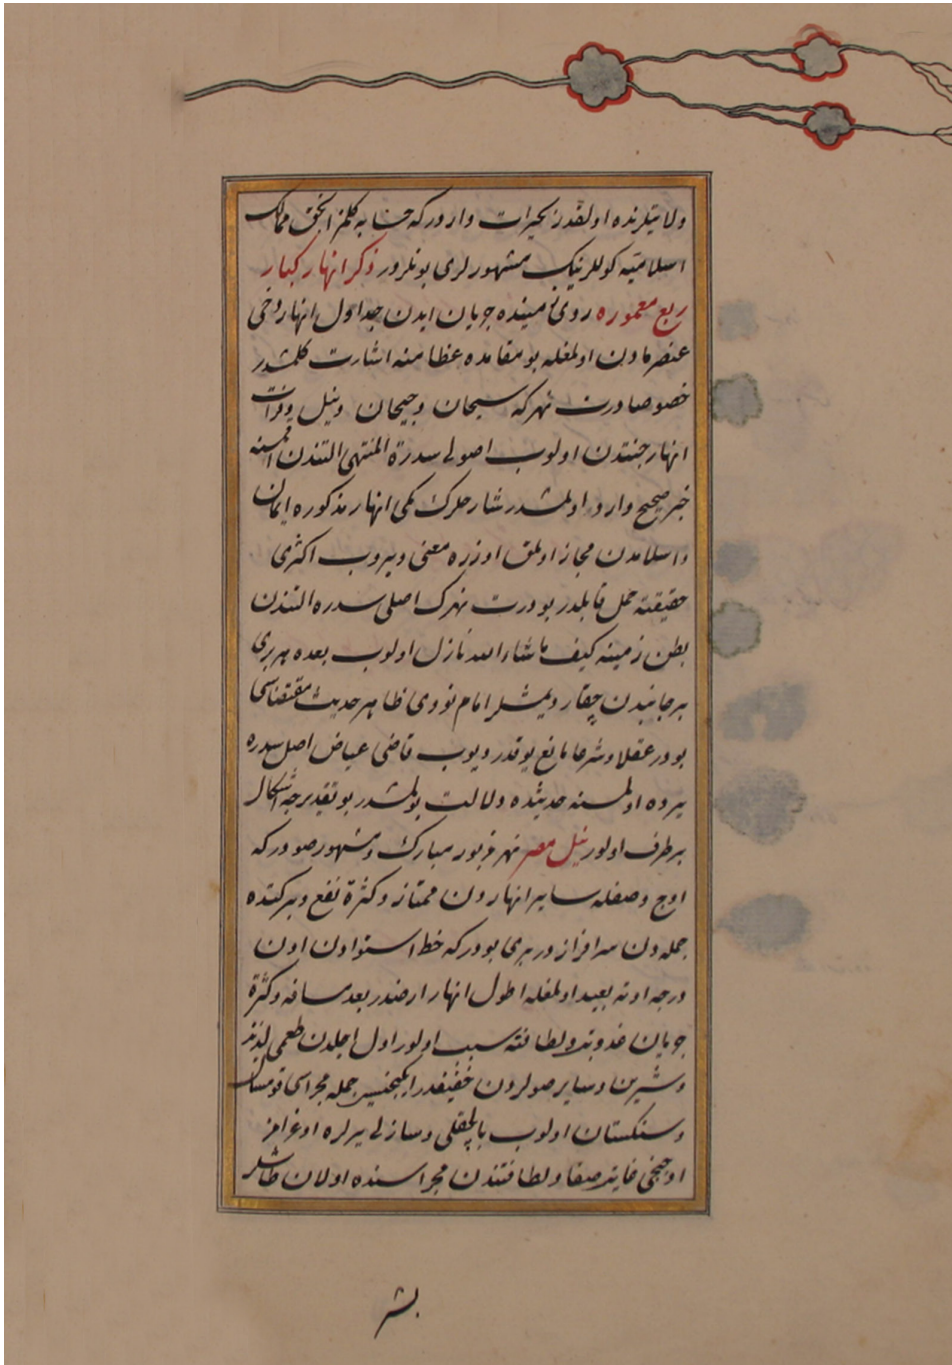 ولایتلرنده اولقدر بحیرات واردر که حسابه کلمز انجق ممالک
اسلامیّه کوللرینک مشهورلری بونلردر ذکر انهار کبار
ربع معموره روی زمینده جریان ایدن جداول انهار دخی
عنصر مادن اولمغله بو مقامده عظامنه اشارت کلمشدر
خصوصا درت نهر که سیحان وجیحان ونیل وفرات
انهار جنتدن اولوب اصولی سدرة المنتهی التندن اقمسنه
خبر صحیح وارد اولمشدر شارحلرک کمی انهار مذکوره ایمان
واسلامدن مجاز اولمق اوزره معنی ویروب اکثری
حقیقته حمل قابلدر بو درت نهرک اصلی سدره التندن
بطن زمینه کیف ماشاء الله نازل اولوب بعده هر بری
بر جانبدن چقار دیمشلر امام نووی ظاهر حدیث مقتضاسی
بودر عقلا وشرعا مانع یوقدر دیوب قاضی عیاض اصل سدره
یرده اولمسنه حدیثده دلالت بولمشدر بو تقدیرجه اشکال
برطرف اولور نیل مصر نهر مزبور مبارک ومشهور صودر که
اوچ وصفله سایر انهاردن ممتاز وکثرة نفع وبرکتده
جمله دن سرافرازدر بری بودر که خط استوادن اون
درجه اوته بعید اولمغله اطول انهار ارضدر بعد مسافه وکثرة
جریان عذوبته ولطافته سبب اولور اول اجلدن طعمی لذیذ
وشیرین وسایر صولردن خفیفدر ایکنجیسی جمله مجراسی قومسال
وسنکستان اولوب بالچقلی وسازلی یرلره اوغرامز
اوچنجی غایت صفا ولطافتندن مجراسنده اولان طاشلر
بشر